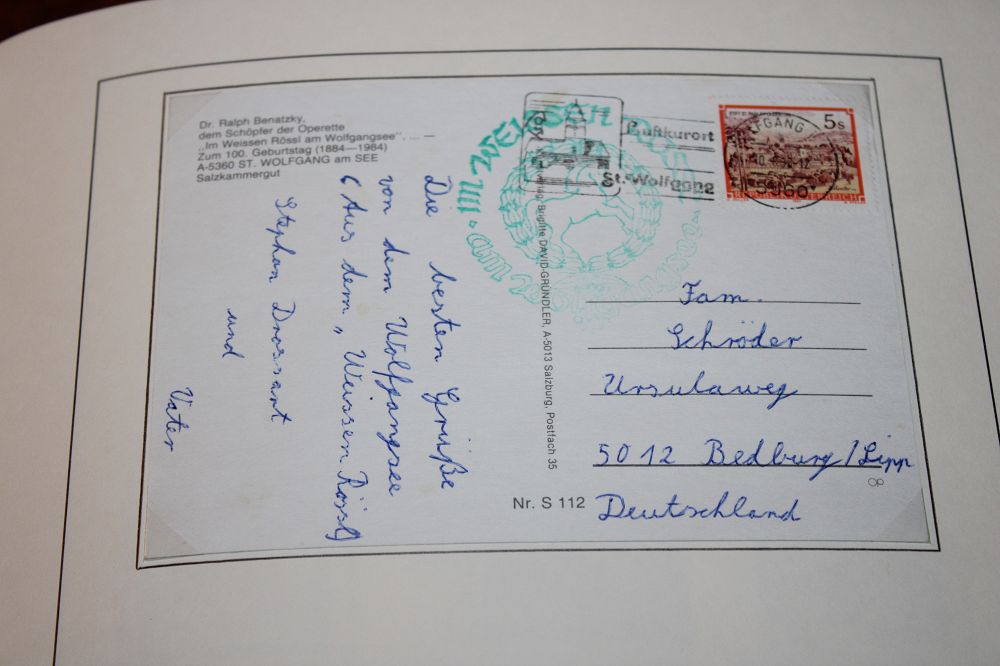 Dr. Ralph Benatzky,
dem Schöpfer der Operette
„Im Weissen Rössl am Wolfgangsee". . . —
Zum 100. Geburtstag (1884—1984)
A-5360 ST. WOLFGANG am SEE
Salzkammergut
Die besten Grüße
von dem Wolfgangsee
( Aus dem „ Weissen Rössl)
Stephan Drossart
und
Vater
Verlag Brigitte DAVID-GRÜNDLER, A-5013 Salzburg, Postfach 35
Nr. S 112
Luftkurort
St. Wolfgang
5s
WOLFGANG
5360
REPUBLIK ÖSTERREICH
am
Fam.
Schröder
Ursulaweg
5012 Bedburg/Lipp
Deutschland
8